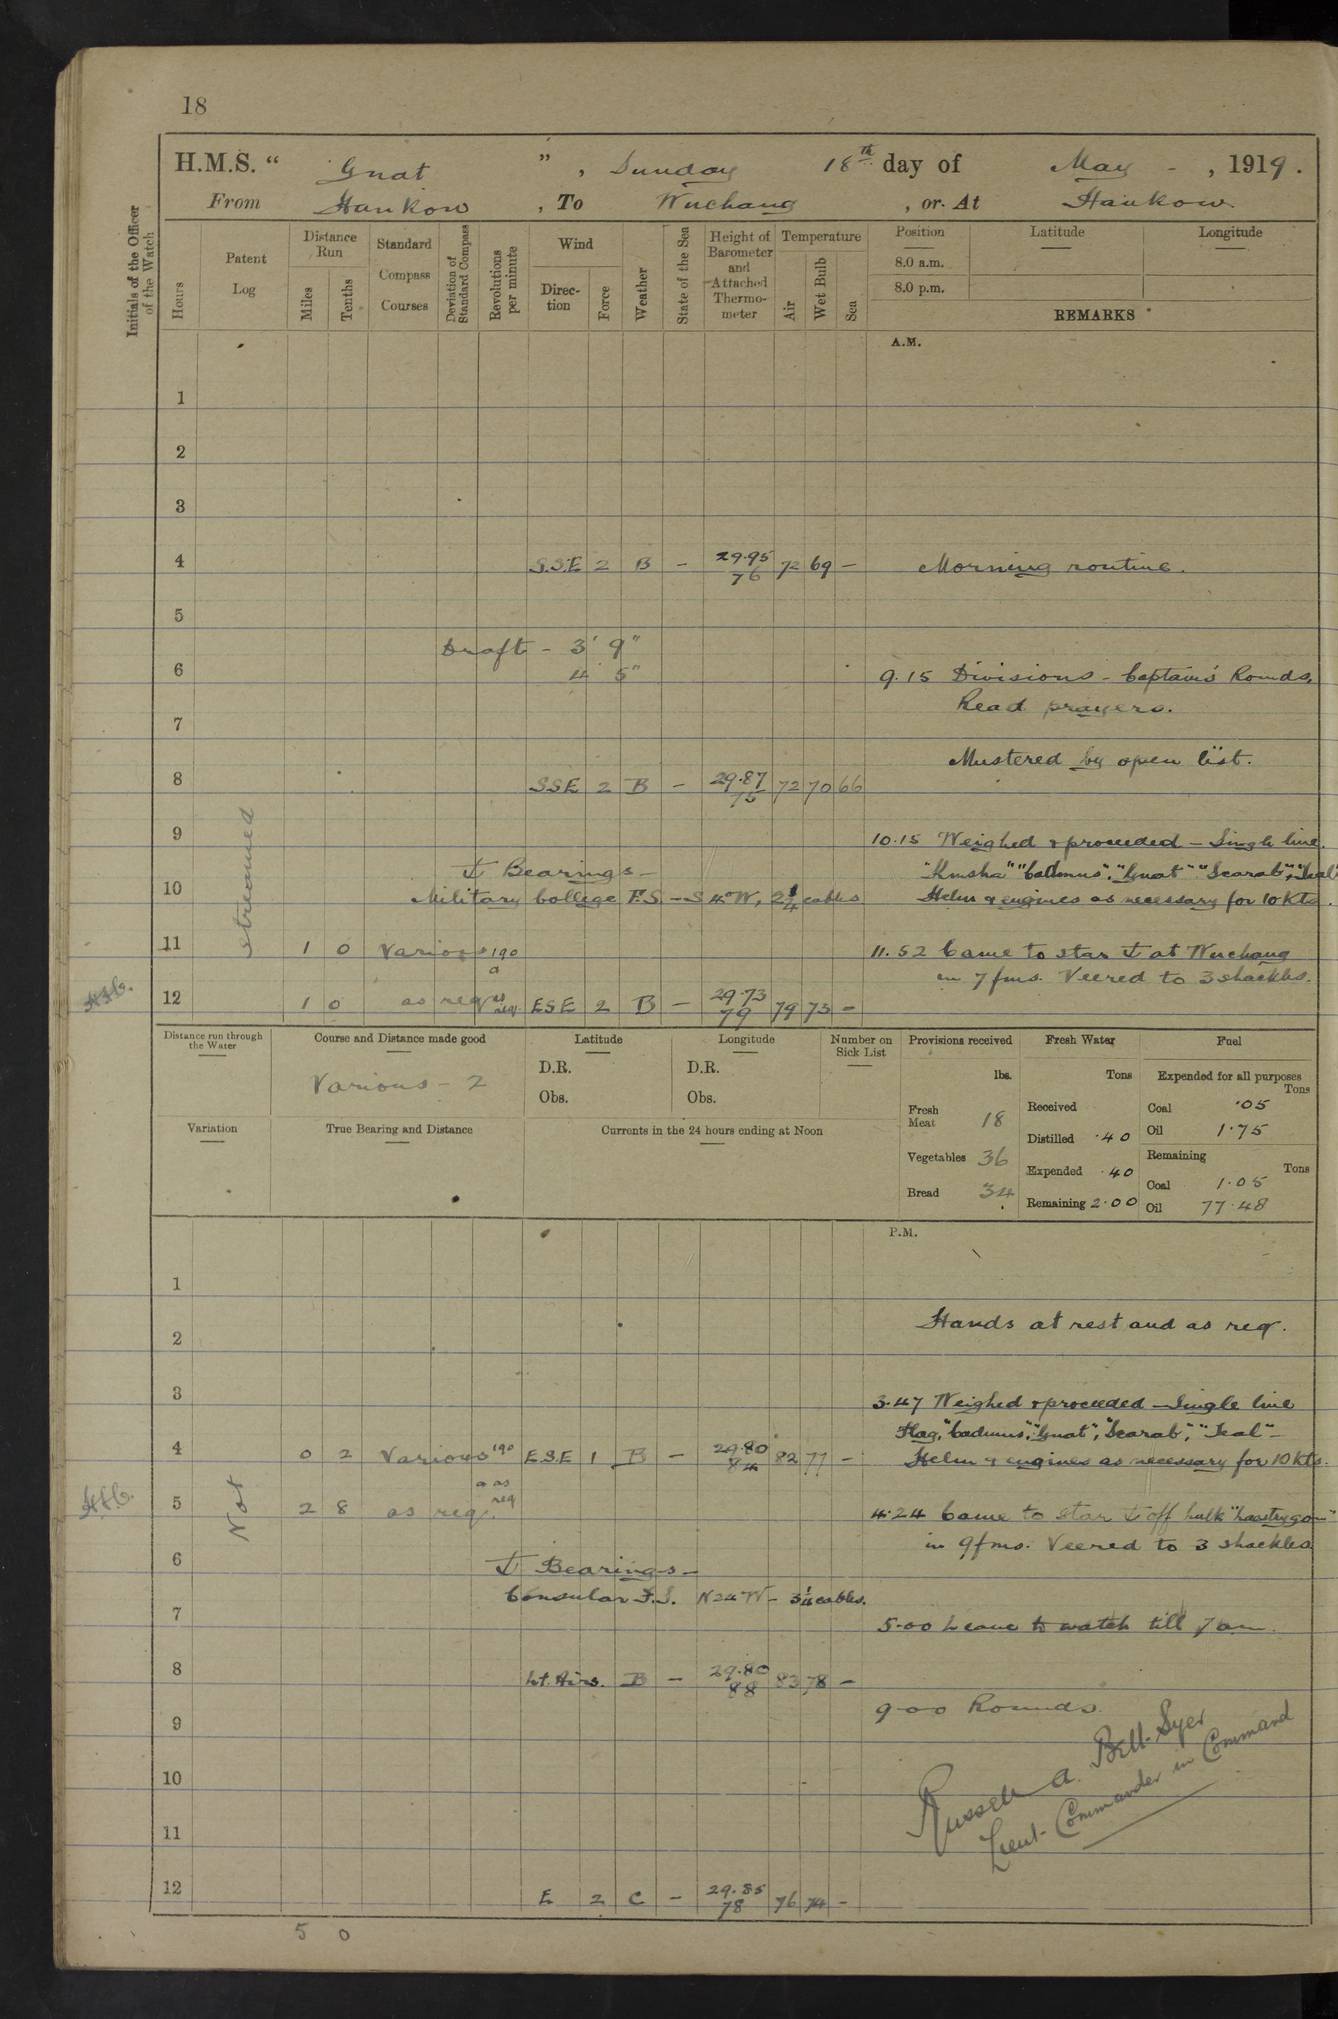 18
H.M.S. “ Gnat ”, Sunday 18th day of May - , 1919.
From Hankow , To Wuchang , or At Hankow
Initials of the Officer of the Watch
Hours
Patent Log
Distance Run
Miles
Tenths
Standard Compass Courses
Deviation of Standard Compass
Revolutions per minute
Wind
Direction
Force
Weather
State of the Sea
Height of Barometer and Attached Thermometer
Temperature
Air
Wet Bulb
Sea
Position
8.0 a.m.
8.0 p.m.
Latitude
Longitude
REMARKS
A.M.
1
2
3
4 S.S.E 2 B - 29.95 76 72 69 - Morning routine.
5
Draft - 3' 9"
4' 5"
6 9.15 Divisions - Captain's Rounds,
Read prayers.
7
Mustered by open list.
8 SSE 2 B - 29.87 75 72 70 66
9 10.15 Weighed & proceeded - Single line.
Bearings -
"Kinsha" "Cadmus", "Gnat" "Scarab", "Teal"
10 Military College F.S. - S 4° W, 2 1/4 cables
Helm & engines as necessary for 10 Kts.
streamed
11 1 0 Various 190 11.52 Came to star at Wuchang
a in 7 fms. Veered to 3 shackles.
12 1 0 as req as req. ESE 2 B - 29.73 79 79 73 -
Distance run through the Water
Course and Distance made good
Various - 2
Latitude
D.R.
Obs.
Longitude
D.R.
Obs.
Number on Sick List
Variation
True Bearing and Distance
Currents in the 24 hours ending at Noon
Provisions received
lbs.
Fresh Meat 18
Vegetables 36
Bread 34
Fresh Water
Tons
Received
Distilled .40
Expended .40
Remaining 2.00
Fuel
Expended for all purposes
Tons
Coal .05
Oil 1.75
Remaining
Tons
Coal 1.05
Oil 77.48
P.M.
1
Hands at rest and as req.
2
3 3.47 Weighed & proceeded - Single line
Flag, "Cadmus", "Gnat", "Scarab", "Teal" -
4 0 2 Various 190 E.S.E 1 B - 29.80 84 82 77 -
Helm & engines as necessary for 10 Kts.
a as req
Not
5 2 8 as req. 4.24 Came to star off hulk
in 9 fms. Veered to 3 shackles
6
Bearings -
Consular F.S. N24°W - 3 1/4 cables.
7 5.00 Leave to watch till 7 am.
8 Lt. Airs. B - 29.80 88 83 78 -
9.00 Rounds.
9
Russell A. Bell-Syer
Lieut-Commander in Command
10
11
12 E 2 C - 29.85 78 76 74 -
5 0